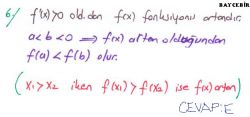 BAYCEBİR
6/ f'(x)>0 old.dan f(x) fonksiyonu artandır.
a<b<0 ⇒ f(x) artan olduğundan
f(a)<f(b) olur.
(x₁>x₂ iken f(x₁)>f(x₂) ise f(x) artan)
CEVAP:E